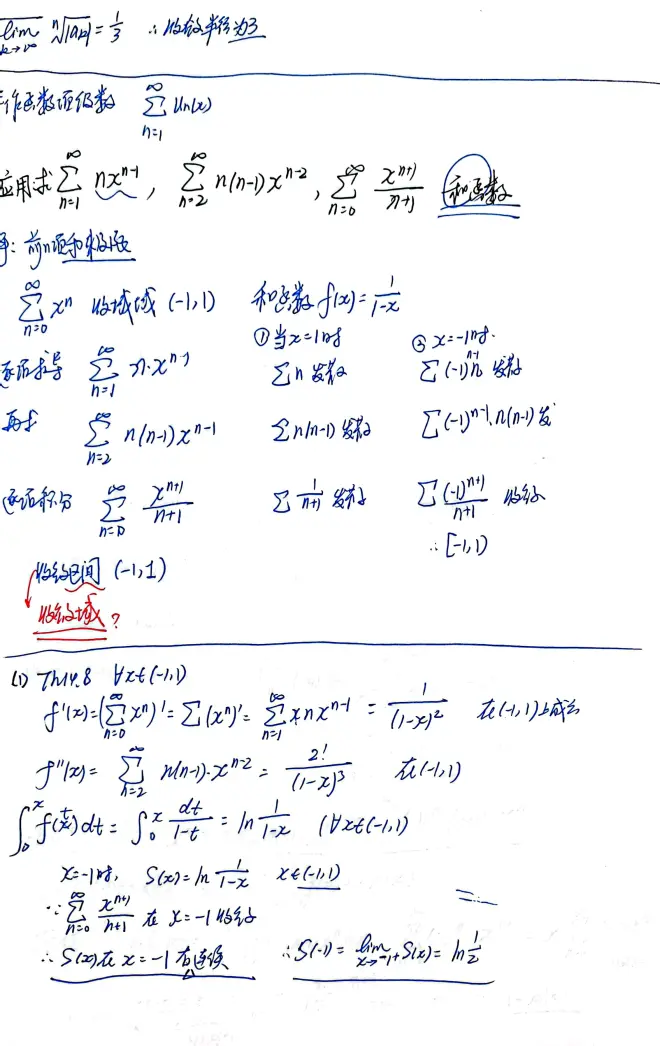 lim n→∞ ⁿ√|aₙ| = 1/3 ∴收敛半径为3
作函数项级数 ∑_{n=1}^{∞} Uₙ(x)
应用求 ∑_{n=1}^{∞} nx^{n-1}, ∑_{n=2}^{∞} n(n-1)x^{n-2}, ∑_{n=0}^{∞} x^{n+1}/(n+1) 和函数
: 前n项和求极限
∑_{n=0}^{∞} xⁿ 收敛域 (-1,1) 和函数 f(x) = 1/(1-x)
①当x=1时 ② x=-1时.
逐项求导 ∑_{n=1}^{∞} n·x^{n-1} ∑n 发散 ∑(-1)^{n-1}n 发散
再求 ∑_{n=2}^{∞} n(n-1)x^{n-1} ∑n(n-1) 发散 ∑(-1)^{n-1}.n(n-1) 发
逐项积分 ∑_{n=0}^{∞} x^{n+1}/(n+1) ∑ 1/(n+1) 发散 ∑ (-1)^{n+1}/(n+1) 收敛
∴ [-1,1)
收敛区间 (-1,1)
收敛域?
(1) Th14.8 ∀x∈(-1,1)
f'(x) = (∑_{n=0}^{∞} xⁿ)' = ∑(xⁿ)' = ∑_{n=1}^{∞} nx^{n-1} = 1/(1-x)² 在(-1,1)上成立
f''(x) = ∑_{n=2}^{∞} n(n-1)·x^{n-2} = 2!/(1-x)³ 在(-1,1)
∫₀ˣ f(t)dt = ∫₀ˣ dt/(1-t) = ln 1/(1-x) (∀x∈(-1,1)
x=-1时, S(x) = ln 1/(1-x) x∈(-1,1)
∵ ∑_{n=0}^{∞} x^{n+1}/(n+1) 在 x=-1收敛
∴ S(x)在 x=-1 右连续 ∴S(-1) = lim_{x→-1+} S(x) = ln 1/2